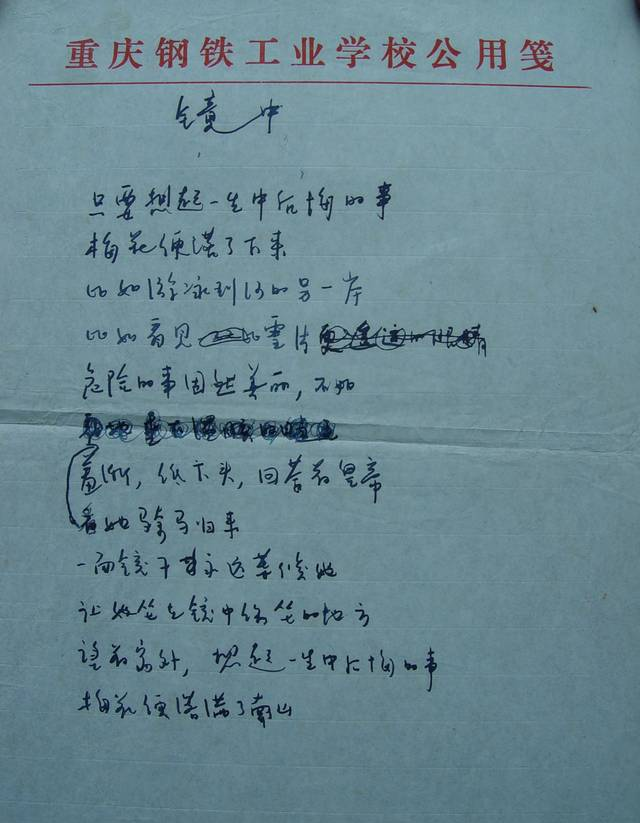 重庆钢铁工业学校公用笺
镜中
只要想起一生中后悔的事
梅花便落了下来
比如游泳到河的另一岸
比如看见比雪片更遥远的眼睛
危险的事固然美丽，不如
羞惭，低下头，回答着皇帝
看她骑马归来
一面镜子永远等候她
让她坐到镜中常坐的地方
望着窗外，想起一生中后悔的事
梅花便落满了南山